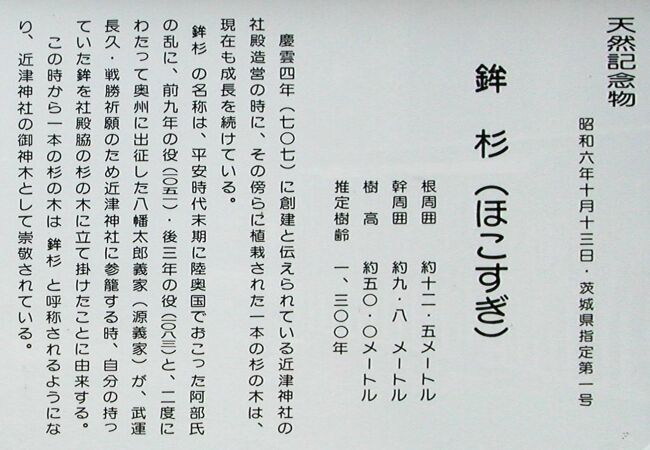 天然記念物
昭和六年十月十三日・茨城県指定第一号
鉾杉（ほこすぎ）
根周囲 約十二・五メートル
幹周囲 約九・八 メートル
樹高 約五〇・〇メートル
推定樹齢 一、三〇〇年
慶雲四年（七〇七）に創建と伝えられている近津神社の
社殿造営の時に、その傍らに植栽された一本の杉の木は、
現在も成長を続けている。
鉾杉 の名称は、平安時代末期に陸奥国でおこった阿部氏
の乱に、前九年の役（一〇五一）・後三年の役（一〇八三）と、二度に
わたって奥州に出征した八幡太郎義家（源義家）が、武運
長久・戦勝祈願のため近津神社に参籠する時、自分の持っ
ていた鉾を社殿脇の杉の木に立て掛けたことに由来する。
この時から一本の杉の木は 鉾杉 と呼称されるようにな
り、近津神社の御神木として崇敬されている。